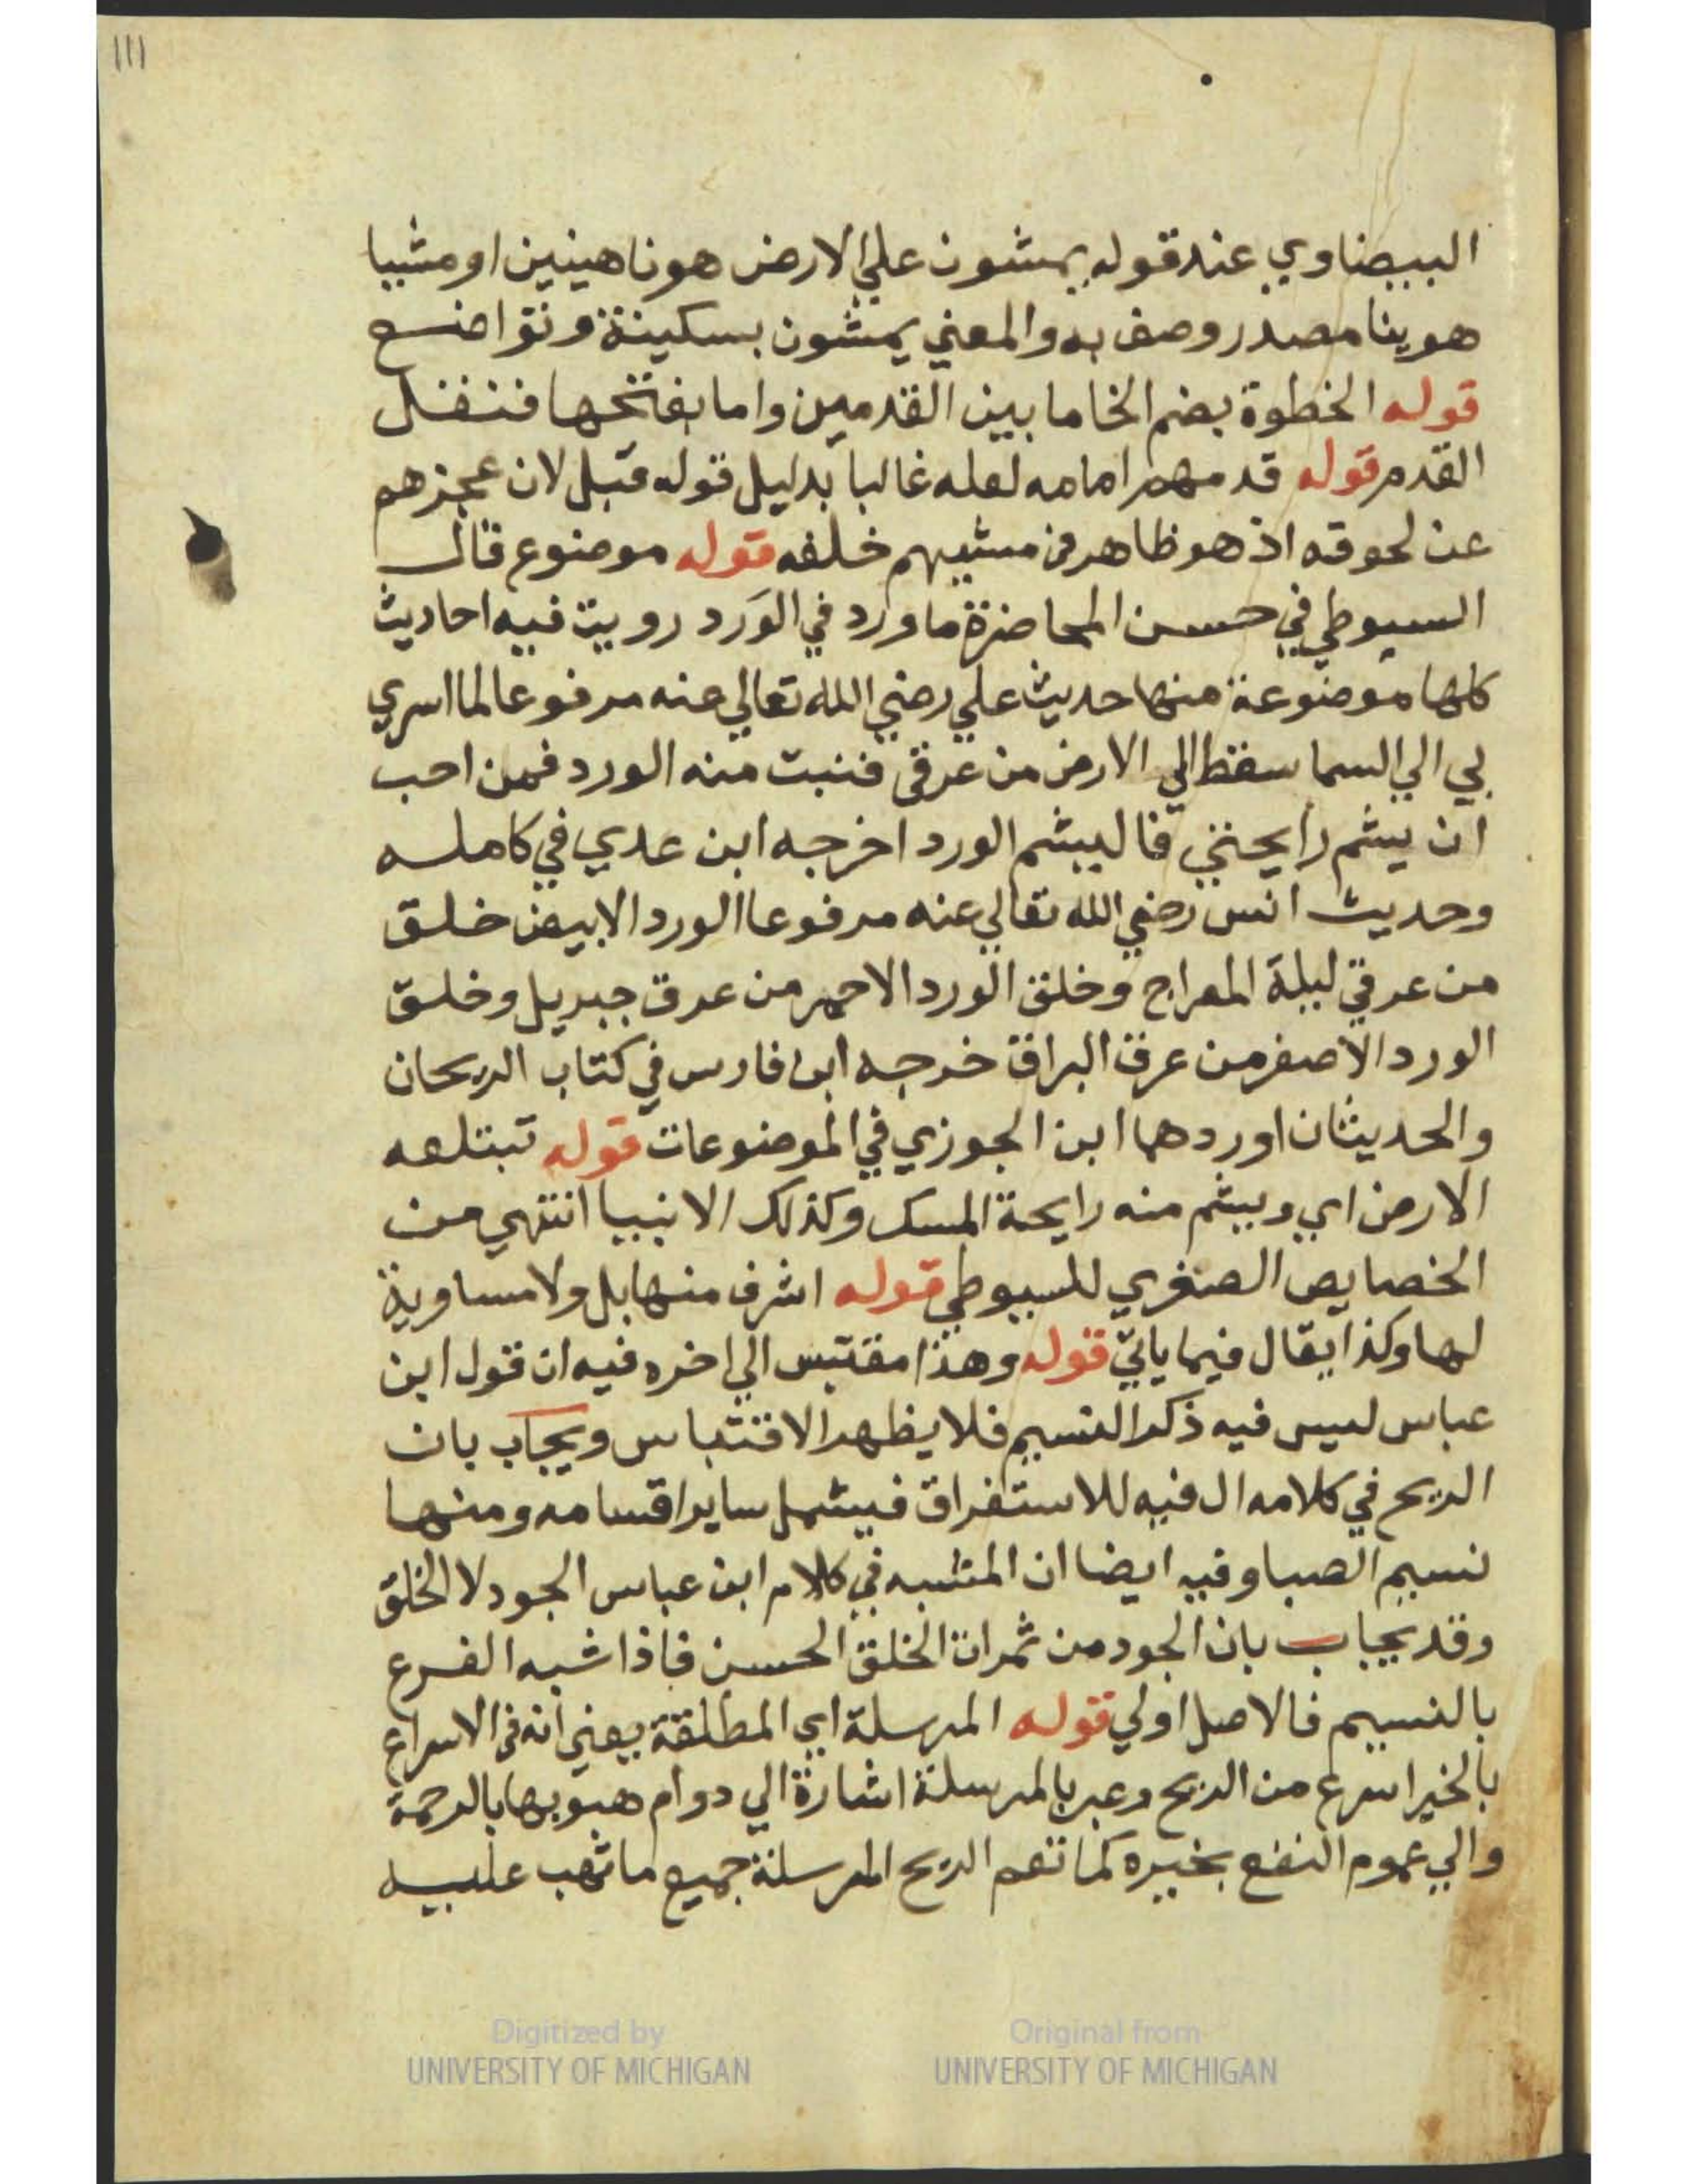 111
البيضاوي عند قوله يمشون علي الارض هونا هينين او مشيا
هوينا مصدر وصف به والمعني يمشون بسكينة وتواضع
قوله الخطوة بضم الخا ما بين القدمين واما بفتحها فنقل
القدم قوله قدمهم امامه لعله غالبا بدليل قوله قبل لان عجزهم
عن لحوقه اذ هو ظاهر في مشيهم خلفه قوله موضوع قال
السيوطي في حسن المحاضرة ما ورد في الوَرد رويت فيه احاديث
كلها موضوعة منها حديث علي رضي الله تعالي عنه مرفوعا لما اسري
بي الي السما سقط الي الارض من عرقي فنبت منه الورد فمن احب
ان يشم رايحتي فاليشم الورد اخرجه ابن عدي في كامله
وحديث انس رضي الله تعالي عنه مرفوعا الورد الابيض خلق
من عرقي ليلة المعراج وخلق الورد الاحمر من عرق جبريل وخلق
الورد الاصفر من عرق البراق خرجه ابن فارس في كتاب الريحان
والحديثان اوردهما ابن الجوزي في الموضوعات قوله تبتلعه
الارض اي ويشم منه رايحة المسك وكذلك الانبيا انتهي من
الخصايص الصغري للسيوطي قوله اشرف منها بل ولا مساوية
لها وكذا يقال فيما ياتي قوله وهذا مقتبس الي اخره فيه ان قول ابن
عباس ليس فيه ذكر النسيم فلا يظهر الاقتباس ويجاب بان
الريح في كلامه ال فيه للاستغراق فيشمل ساير اقسامه ومنها
نسيم الصبا وفيه ايضا ان المشبه في كلام ابن عباس الجود لا الخلق
وقد يجاب بان الجود من ثمرات الخلق الحسن فاذا شبه الفرع
بالنسيم فالاصل اولي قوله المرسلة اي المطلقة يعني انه في الاسراع
بالخير اسرع من الريح وعبر بالمرسلة اشارة الي دوام هبوبها بالرحمة
والي عموم النفع بخيره كما تعم الريح المرسلة جميع ما تهب عليه
Digitized by UNIVERSITY OF MICHIGAN
Original from UNIVERSITY OF MICHIGAN